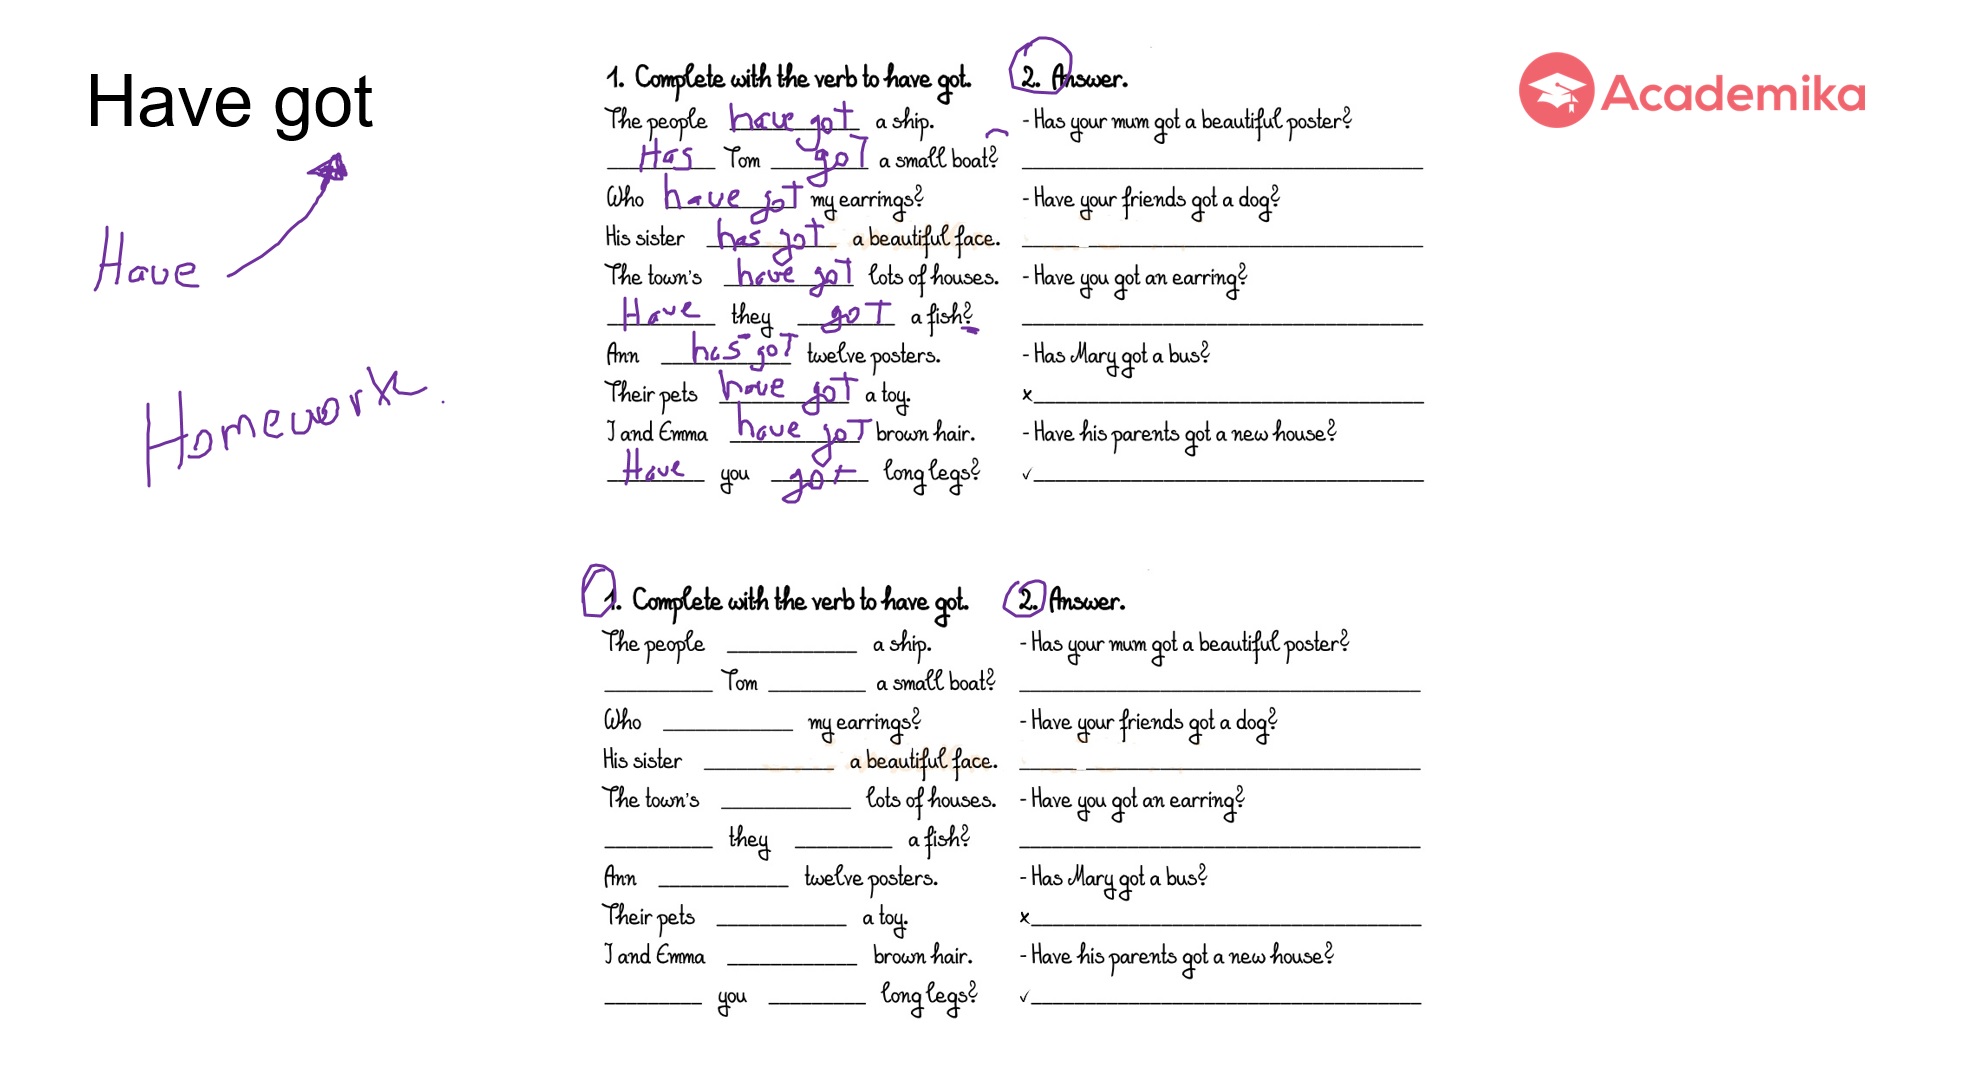 Have got
Have
Homework.
Academika
1. Complete with the verb to have got.
The people have got a ship.
Has Tom got a small boat?
Who have got my earrings?
His sister has got a beautiful face.
The town's have got lots of houses.
Have they got a fish?
Ann has got twelve posters.
Their pets have got a toy.
I and Emma have got brown hair.
Have you got long legs?
2. Answer.
- Has your mum got a beautiful poster?
- Have your friends got a dog?
- Have you got an earring?
- Has Mary got a bus?
x
- Have his parents got a new house?
✓
1. Complete with the verb to have got.
The people ____________ a ship.
__________ Tom _________ a small boat?
Who ____________ my earrings?
His sister ____________ a beautiful face.
The town's ____________ lots of houses.
__________ they _________ a fish?
Ann ____________ twelve posters.
Their pets ____________ a toy.
I and Emma ____________ brown hair.
_________ you _________ long legs?
2. Answer.
- Has your mum got a beautiful poster?
- Have your friends got a dog?
- Have you got an earring?
- Has Mary got a bus?
x
- Have his parents got a new house?
✓